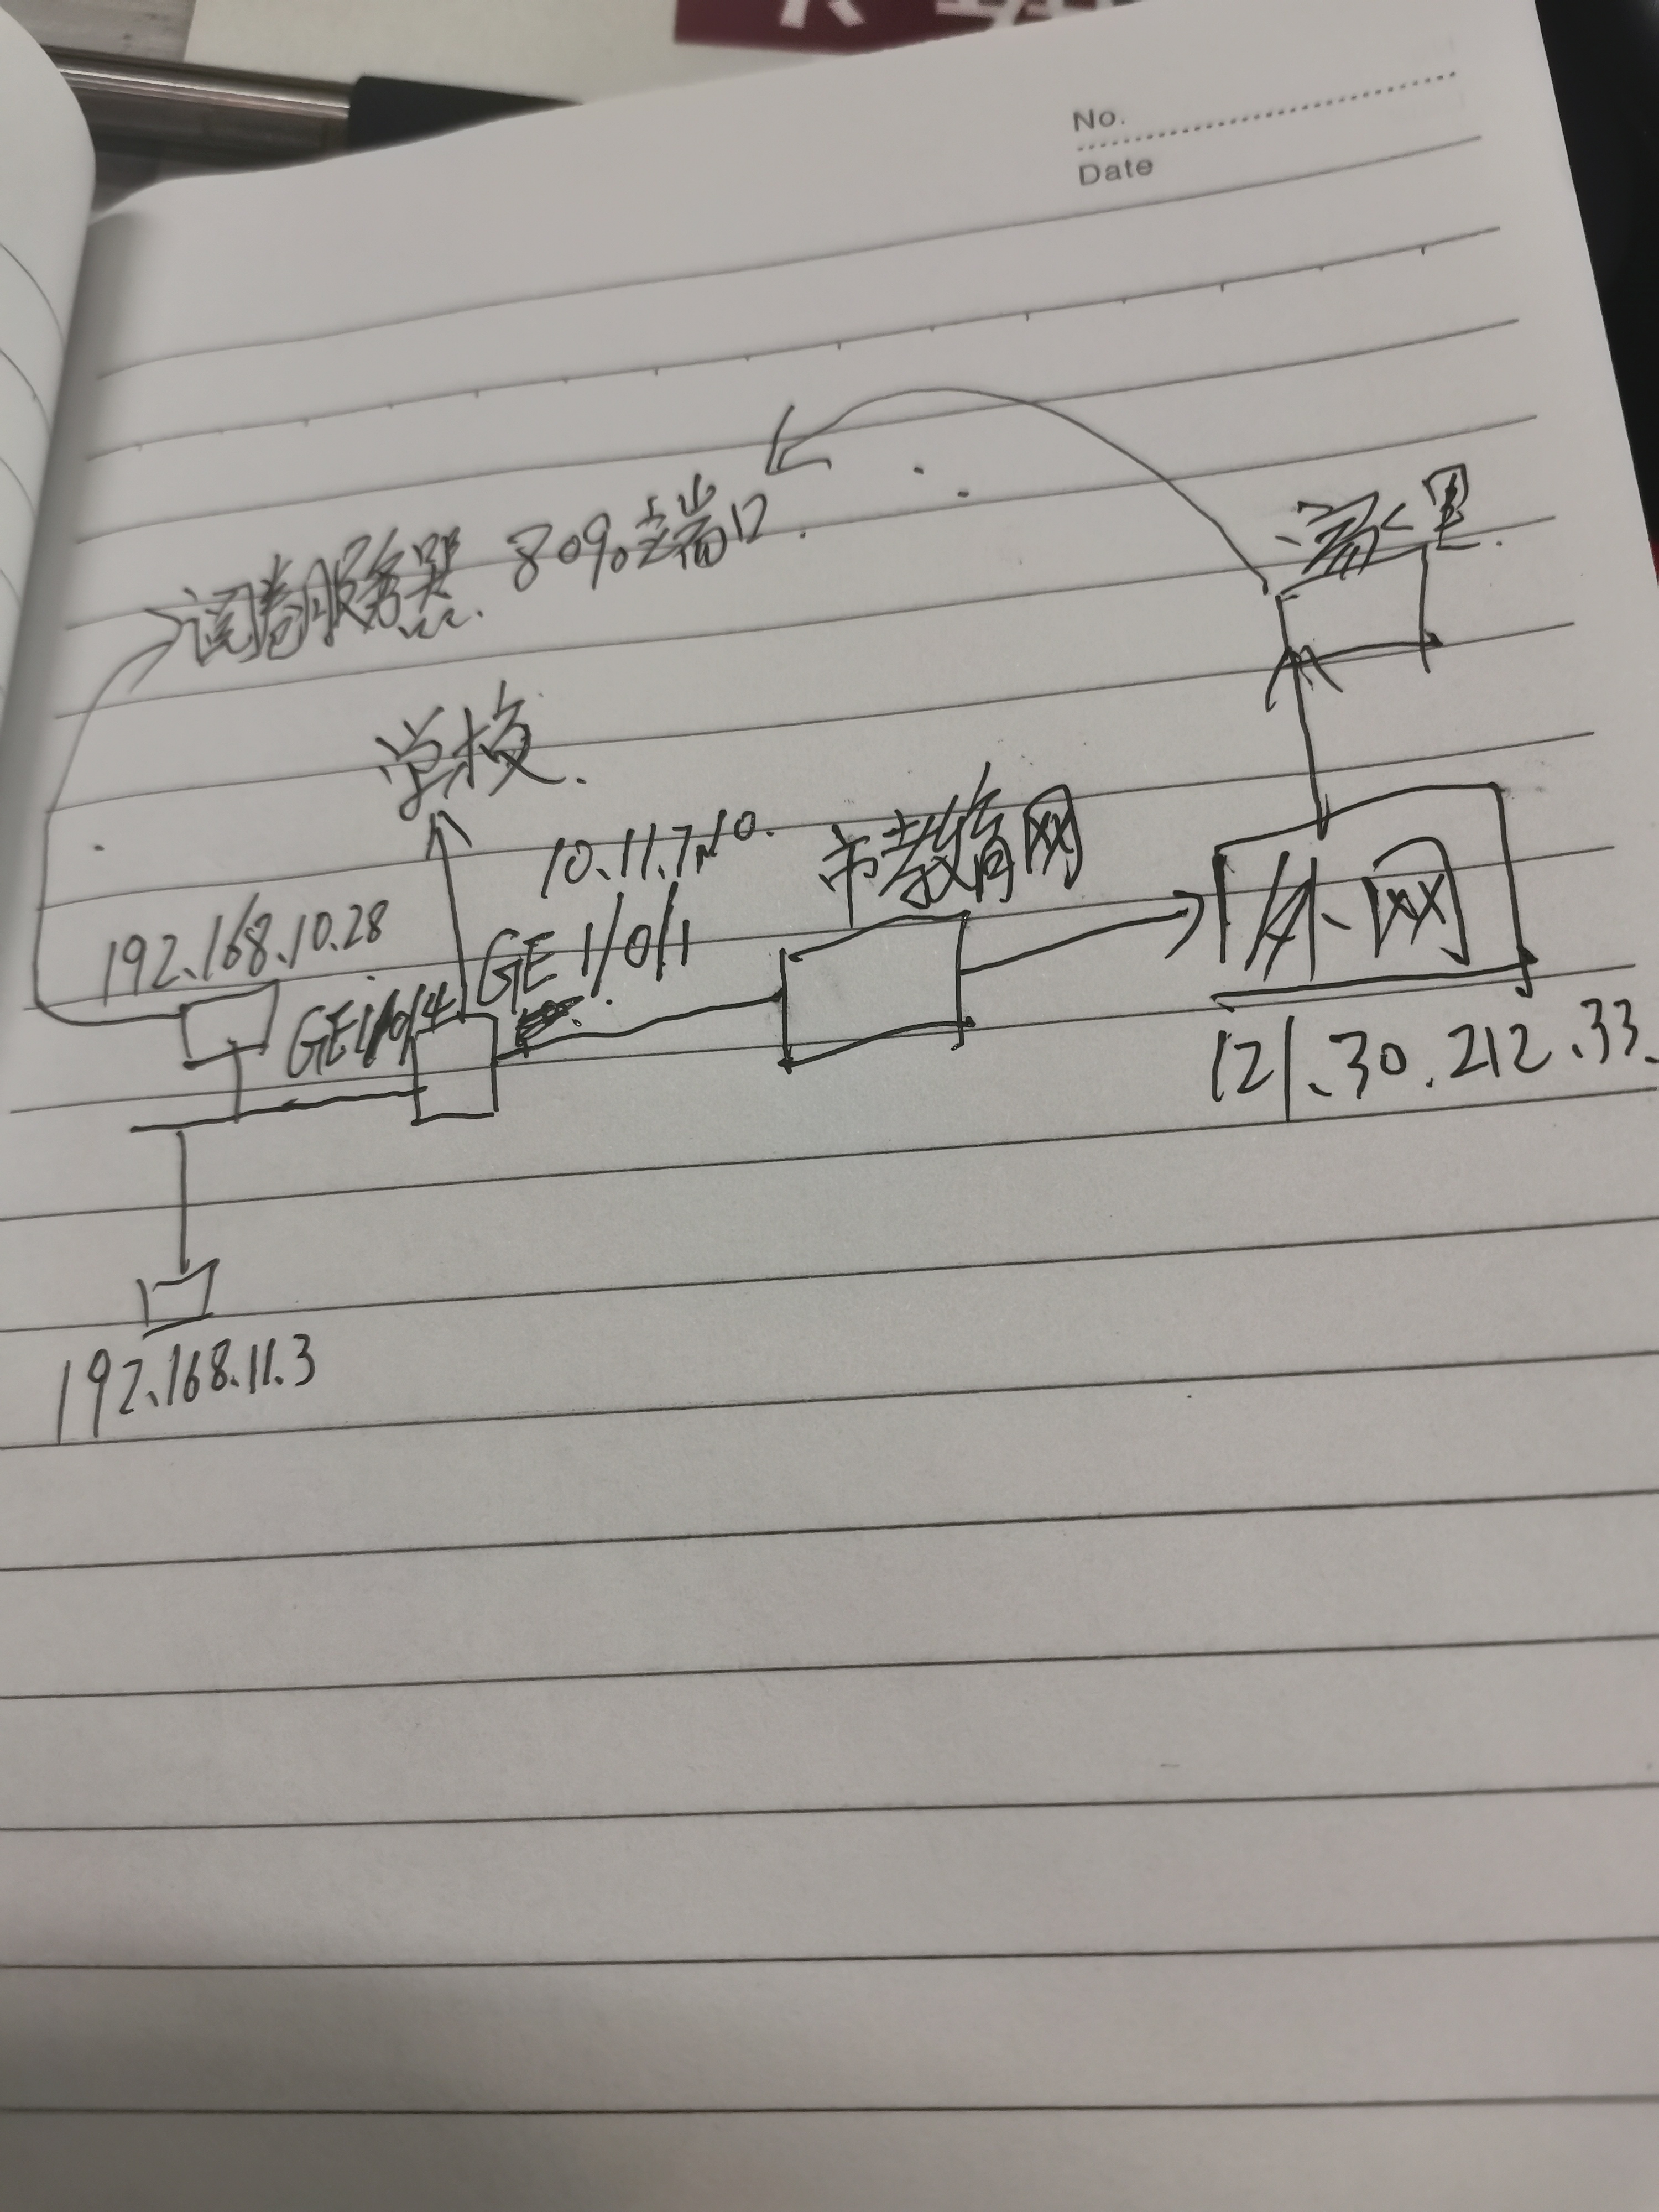 No.
Date
家里.
阅卷服务器. 80%端口.
学校.
10.11.7.10.
市教育网
外网
192.168.10.28
GE1/0/4
GE 1/0/1
121.30.212.33.
192.168.11.3